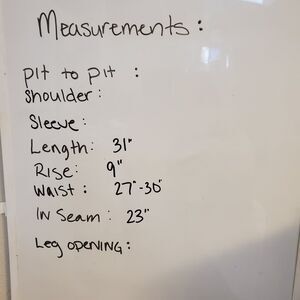 Measurements:
pit to pit :
Shoulder :
Sleeve :
Length: 31"
Rise: 9"
Waist : 27"-30"
IN Seam : 23"
Leg opening :